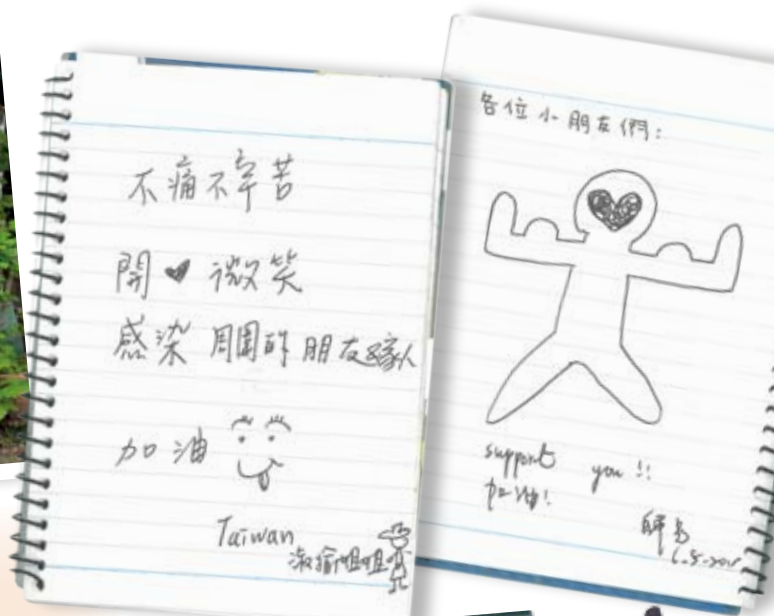 不痛不辛苦
開♥微笑
感染 周圍的 朋友
加油
Taiwan
姐姐
各位小朋友們：
support you !!
加油!